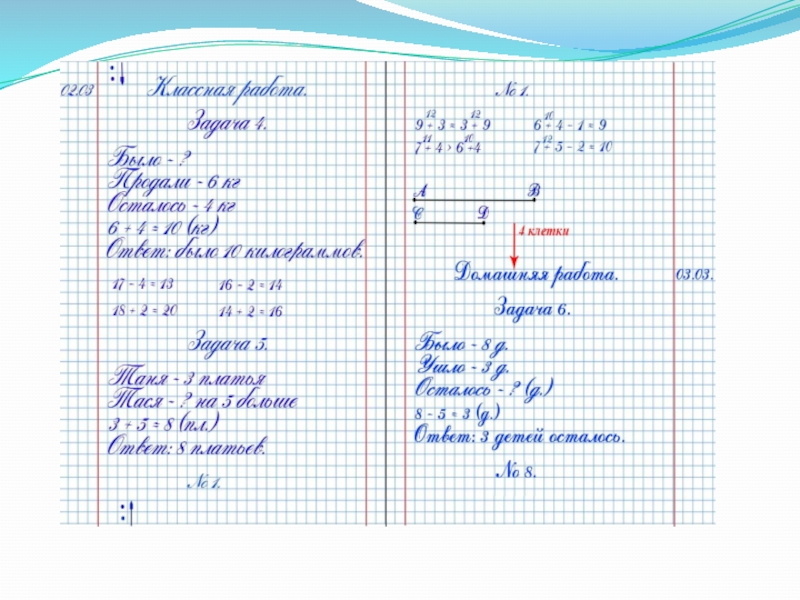 02.03
Классная работа.
Задача 4.
Было - ?
Продали - 6 кг
Осталось - 4 кг
6 + 4 = 10 (кг)
Ответ: было 10 килограммов.
17 - 4 = 13 16 - 2 = 14
18 + 2 = 20 14 + 2 = 16
Задача 5.
Таня - 3 платья
Тася - ? на 5 больше
3 + 5 = 8 (пл.)
Ответ: 8 платьев.
№ 1.
№ 1.
12 12 10
9 + 3 = 3 + 9 6 + 4 - 1 = 9
11 10 12
7 + 4 > 6 + 4 7 + 5 - 2 = 10
А В
С D
4 клетки
Домашняя работа. 03.03.
Задача 6.
Было - 8 д.
Ушло - 3 д.
Осталось - ? (д.)
8 - 5 = 3 (д.)
Ответ: 3 детей осталось.
№ 8.